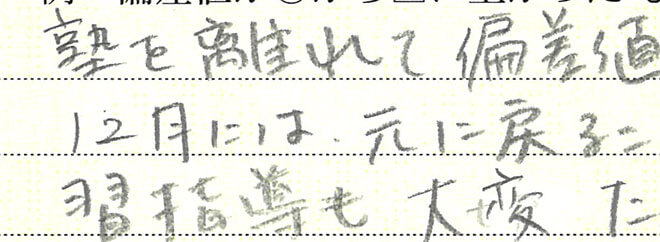 塾を離れて偏差値
12月には、元に戻るこ
習指導も大変 だ